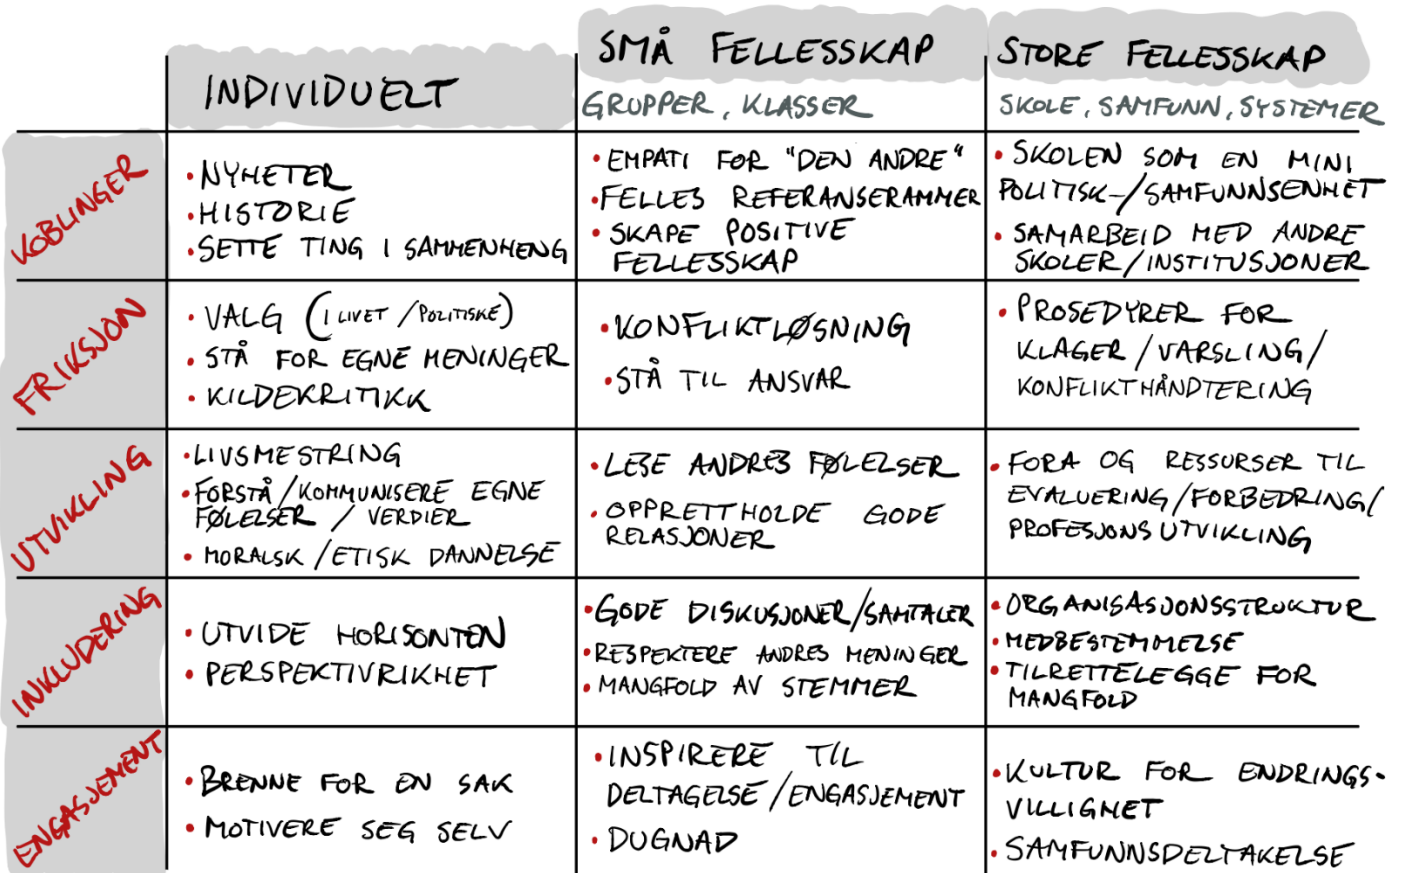 INDIVIDUELT
SMÅ FELLESSKAP
GRUPPER, KLASSER
STORE FELLESSKAP
SKOLE, SAMFUNN, SYSTEMER
KOBLINGER
• NYHETER
• HISTORIE
• SETTE TING I SAMMENHENG
• EMPATI FOR "DEN ANDRE"
• FELLES REFERANSERAMMER
• SKAPE POSITIVE
FELLESSKAP
• SKOLEN SOM EN MINI
POLITISK-/SAMFUNNSENHET
• SAMARBEID MED ANDRE
SKOLER/INSTITUSJONER
FRIKSJON
• VALG (I LIVET/POLITISKE)
• STÅ FOR EGNE MENINGER
• KILDEKRITIKK
• KONFLIKTLØSNING
• STÅ TIL ANSVAR
• PROSEDYRER FOR
KLAGER/VARSLING/
KONFLIKTHÅNDTERING
UTVIKLING
• LIVSMESTRING
• FORSTÅ/KOMMUNISERE EGNE
FØLELSER / VERDIER
• MORALSK/ETISK DANNELSE
• LESE ANDRES FØLELSER
• OPPRETTHOLDE GODE
RELASJONER
• FORA OG RESSURSER TIL
EVALUERING/FORBEDRING/
PROFESJONSUTVIKLING
INKLUDERING
• UTVIDE HORISONTEN
• PERSPEKTIVRIKHET
• GODE DISKUSJONER/SAMTALER
• RESPEKTERE ANDRES MENINGER
• MANGFOLD AV STEMMER
• ORGANISASJONSSTRUKTUR
• MEDBESTEMMELSE
• TILRETTELEGGE FOR
MANGFOLD
ENGASJEMENT
• BRENNE FOR EN SAK
• MOTIVERE SEG SELV
• INSPIRERE TIL
DELTAGELSE/ENGASJEMENT
• DUGNAD
• KULTUR FOR ENDRINGS-
VILLIGHET
• SAMFUNNSDELTAKELSE